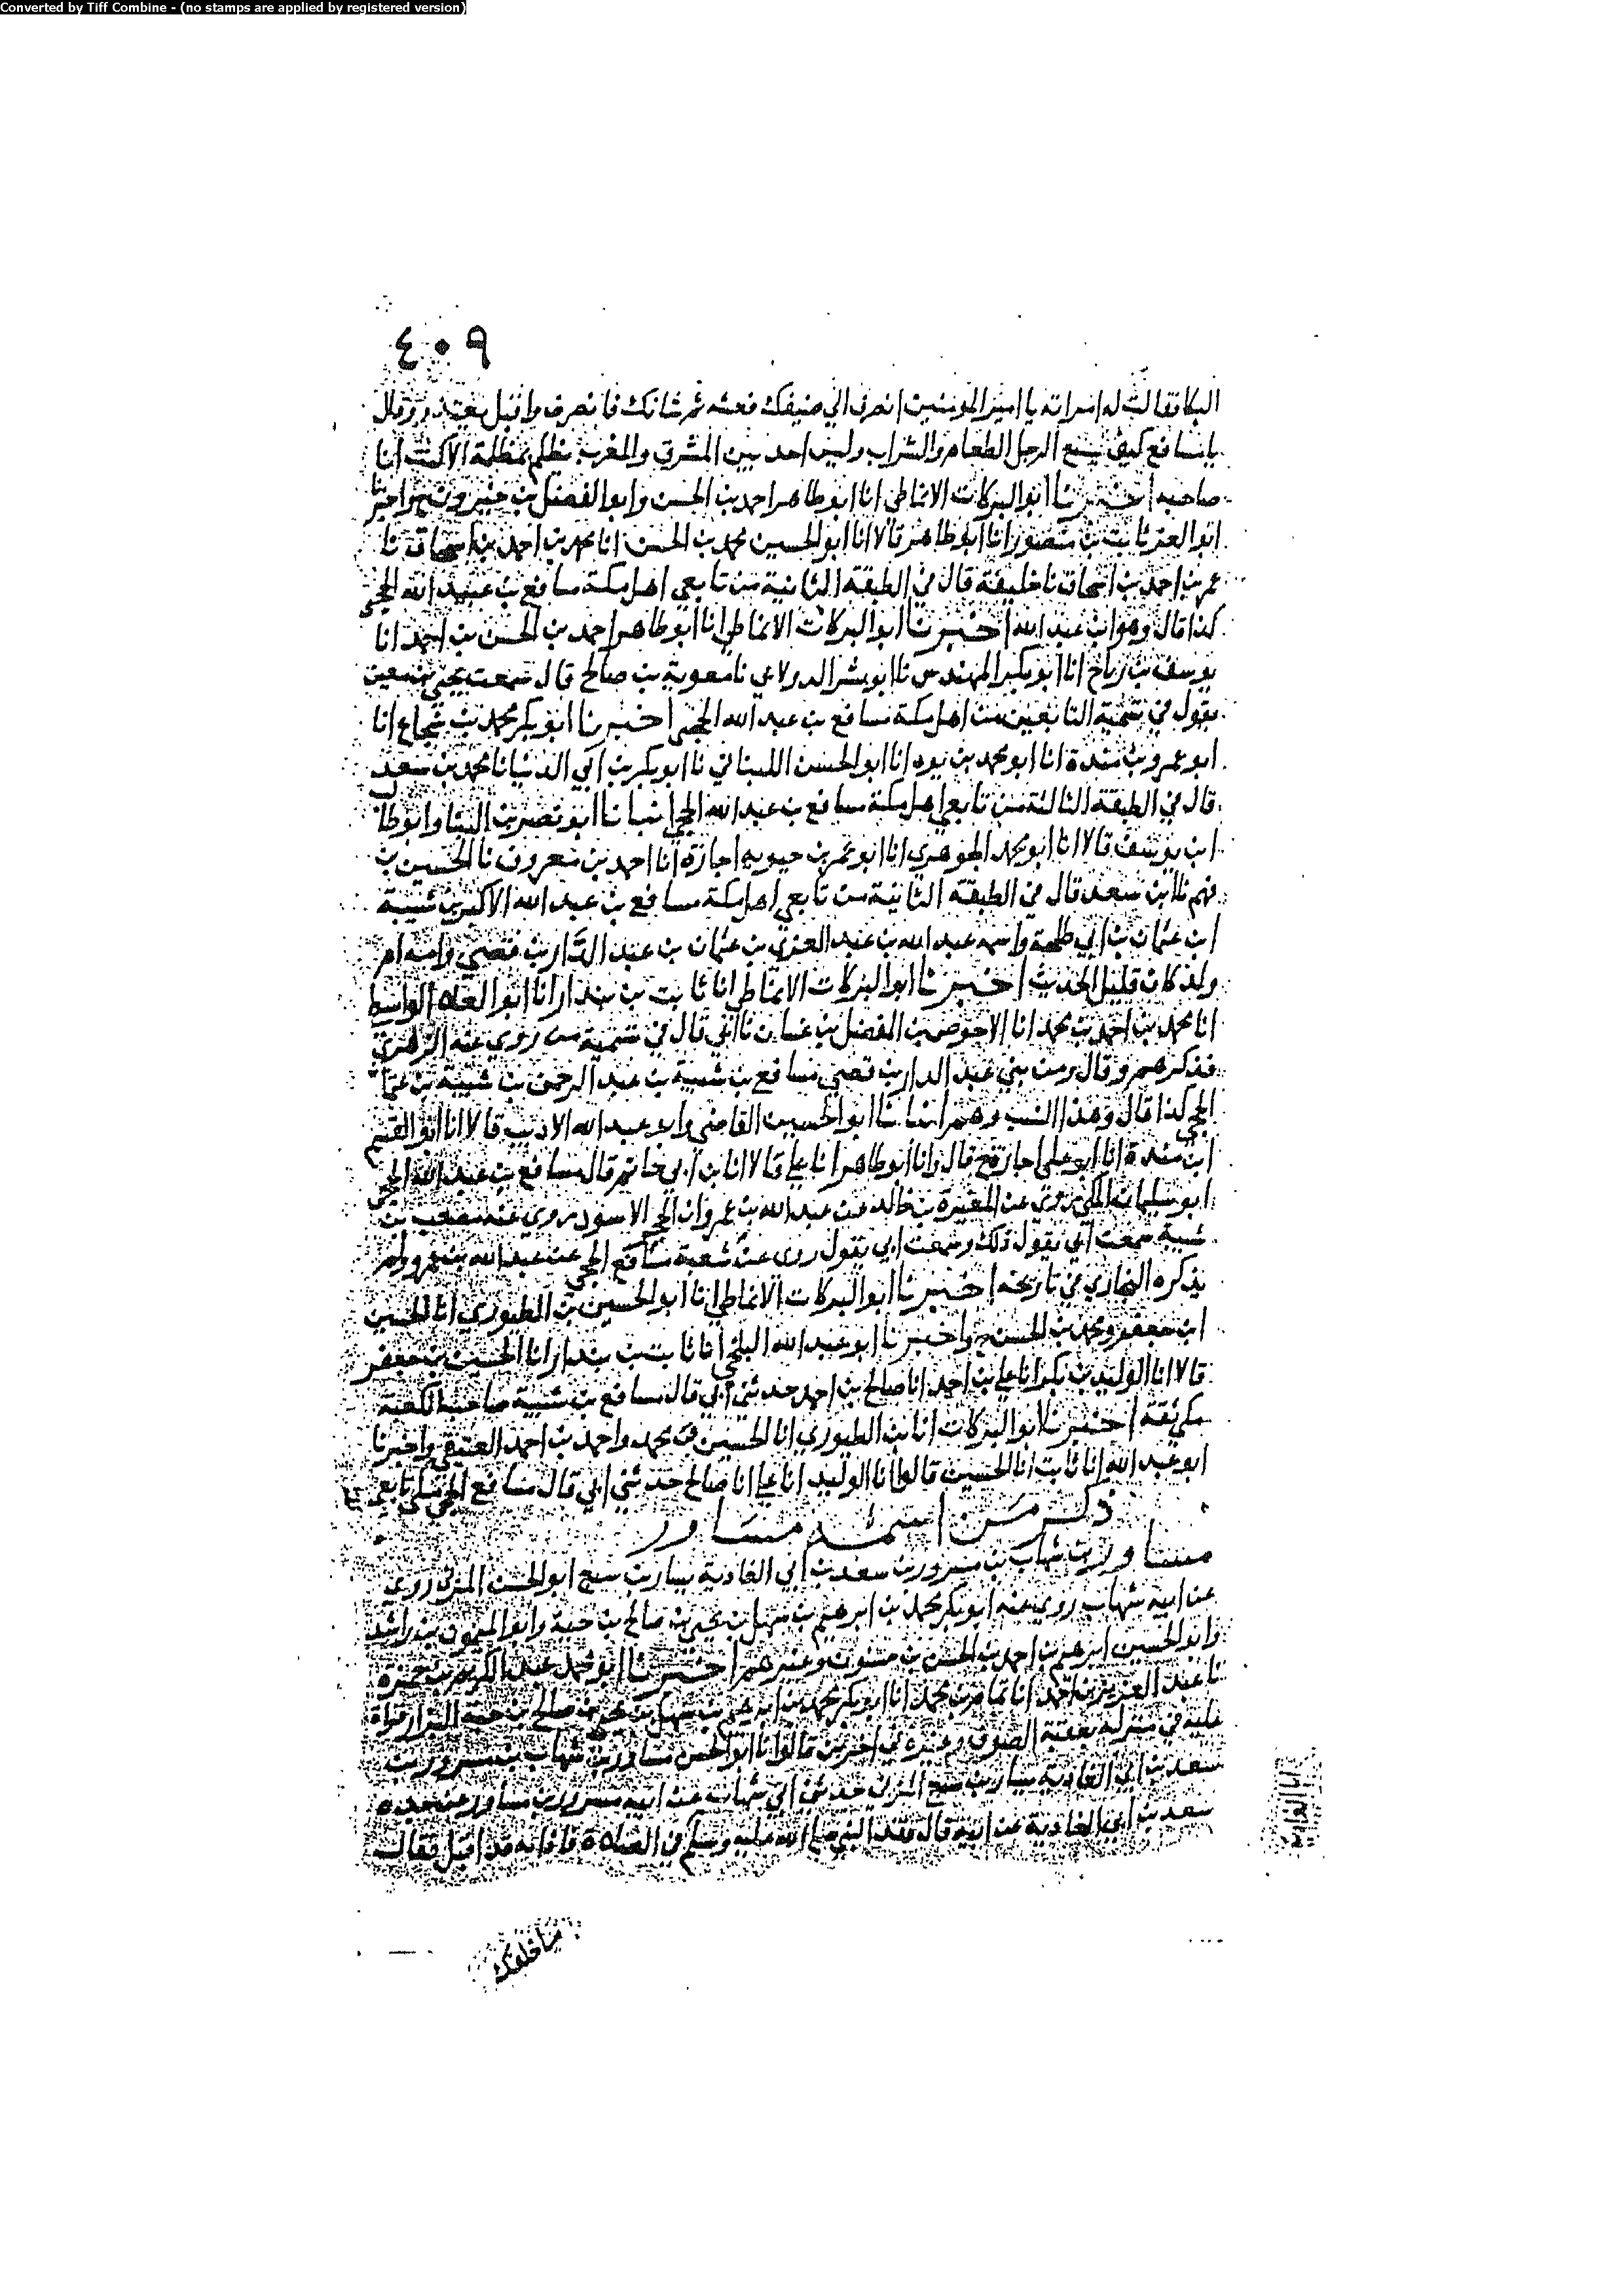 Converted by Tiff Combine - (no stamps are applied by registered version)
٤٠٩
البكا فقالت له امراته يا امير المومنين انصرف الي ضيفك فعشه ثم شانك فانصرف واقبل يعتذر وقال
يا مسافع كيف يسيغ الرجل الطعام والشراب وليس احد بين المشرق والمغرب يظلم بمظلمة الا كنت انا
صاحبه اخبرنا ابو البركات الانماطي انا ابو طاهر احمد بن الحسن وابو الفضل بن خيرون ح واخبرنا
ابو العز ثابت بن منصور انا ابو طاهر قالا انا ابو الحسين محمد بن الحسن انا محمد بن احمد بن اسحاق نا
عمر بن احمد بن اسحاق نا خليفة قال في الطبقة الثانية من تابعي اهل مكة مسافع بن عبيد الله الحجبي
كذا قال وهو ابن عبد الله اخبرنا ابو البركات الانماطي انا ابو طاهر احمد بن الحسن بن احمد انا
يوسف بن رباح انا ابو بكر المهندس نا ابو بشر الدولابي نا معوية بن صالح قال سمعت يحيي بن معين
يقول في تسمية التابعين من اهل مكة مسافع بن عبد الله الحجبي اخبرنا ابو بكر محمد بن شجاع انا
ابو عمرو بن مندة انا ابو محمد بن يوه انا ابو الحسن اللبناني نا ابو بكر بن ابي الدنيا نا محمد بن سعد
قال في الطبقة الثالثة من تابعي اهل مكة مسافع بن عبد الله الحجبي انبانا ابو نصر بن البنا وابو طالب
ابن يوسف قالا انا ابو محمد الجوهري انا ابو عمر بن حيويه اجازة انا احمد بن معروف نا الحسين بن
فهم نا ابن سعد قال في الطبقة الثانية من تابعي اهل مكة مسافع بن عبد الله الاكبر بن شيبة
ابن عثمان بن ابي طلحة واسمه عبد الله بن عبد العزي بن عثمان بن عبد الدار بن قصي وامه ام
ولد كان قليل الحديث اخبرنا ابو البركات الانماطي انا ثابت بن بندار انا ابو العلاء الواسطي
انا محمد بن احمد بن محمد انا الاحوص بن المفضل بن غسان نا ابي قال في تسمية من روي عنه الزهري
فذكرهم وقال ومن بني عبد الدار بن قصي مسافع بن شيبة بن عبد الرحمن بن شيبة بن عثمان
الحجبي كذا قال وهذا النسب وهم انبانا ابو الحسين القاضي وابو عبد الله الاديب قالا انا ابو القسم
ابن مندة انا ابو علي اجازة ح قال وانا ابو طاهر انا علي قالا انا ابن ابي حاتم قال مسافع بن عبد الله الحجبي
ابو سليمان المكي يروي عن المغيرة بن خالد عن عبد الله بن عمرو ان الحجر الاسود روي عنه مصعب بن
شيبة سمعت ابي يقول ذلك وسمعت ابي يقول روى عنه شعبة مسافع الحجبي عن عبد الله بن عمرو ولم
يذكره البخاري في تاريخه اخبرنا ابو البركات الانماطي انا ابو الحسين بن الطيوري انا الحسين
ابن جعفر ومحمد بن الحسن ح واخبرنا ابو عبد الله البلخي انا ثابت بن بندار انا الحسين بن جعفر
قالا انا الوليد بن بكر انا علي بن احمد انا صالح بن احمد حدثني ابي قال مسافع بن شيبة صاحب الكعبة
مكي ثقة اخبرنا ابو البركات انا ابن الطيوري انا الحسين بن محمد واحمد بن احمد العتيقي واخبرنا
ابو عبد الله انا ثابت انا الحسين قالوا انا الوليد انا علي انا صالح حدثني ابي قال مسافع الحجبي مكي تابعي
ذكر من اسمه مساور
مساور بن شهاب بن مسرور بن سعد بن ابي الغادية يسار بن سبع ابو الحسن المزني روي
عن ابيه شهاب روي عنه ابو بكر محمد بن ابرهيم بن سهل بن يحيي بن صالح بن حية وابو الميمون بن راشد
وابو الحسين ابرهيم بن احمد بن الحسن بن حسنون وغيرهم اخبرنا ابو محمد عبد الكريم بن حمزة
نا عبد العزيز بن احمد انا تمام بن محمد انا ابو بكر محمد بن ابرهيم بن سهل بن يحيي بن صالح بن حية البزار قراة
عليه في منزله بعقبة الصوف وغيره في اخرين قالوا انا ابو الحسن مساور بن شهاب بن مسرور بن
سعد بن ابي الغادية يسار بن سبع المزني حدثني ابي شهاب عن ابيه مسرور بن مساور عن جده
سعد بن ابي الغادية عن ابيه قال فقد النبي صلى الله عليه وسلم في الصلاة فاذا به قد اقبل فقال
ابا الغادية
ما خلفك